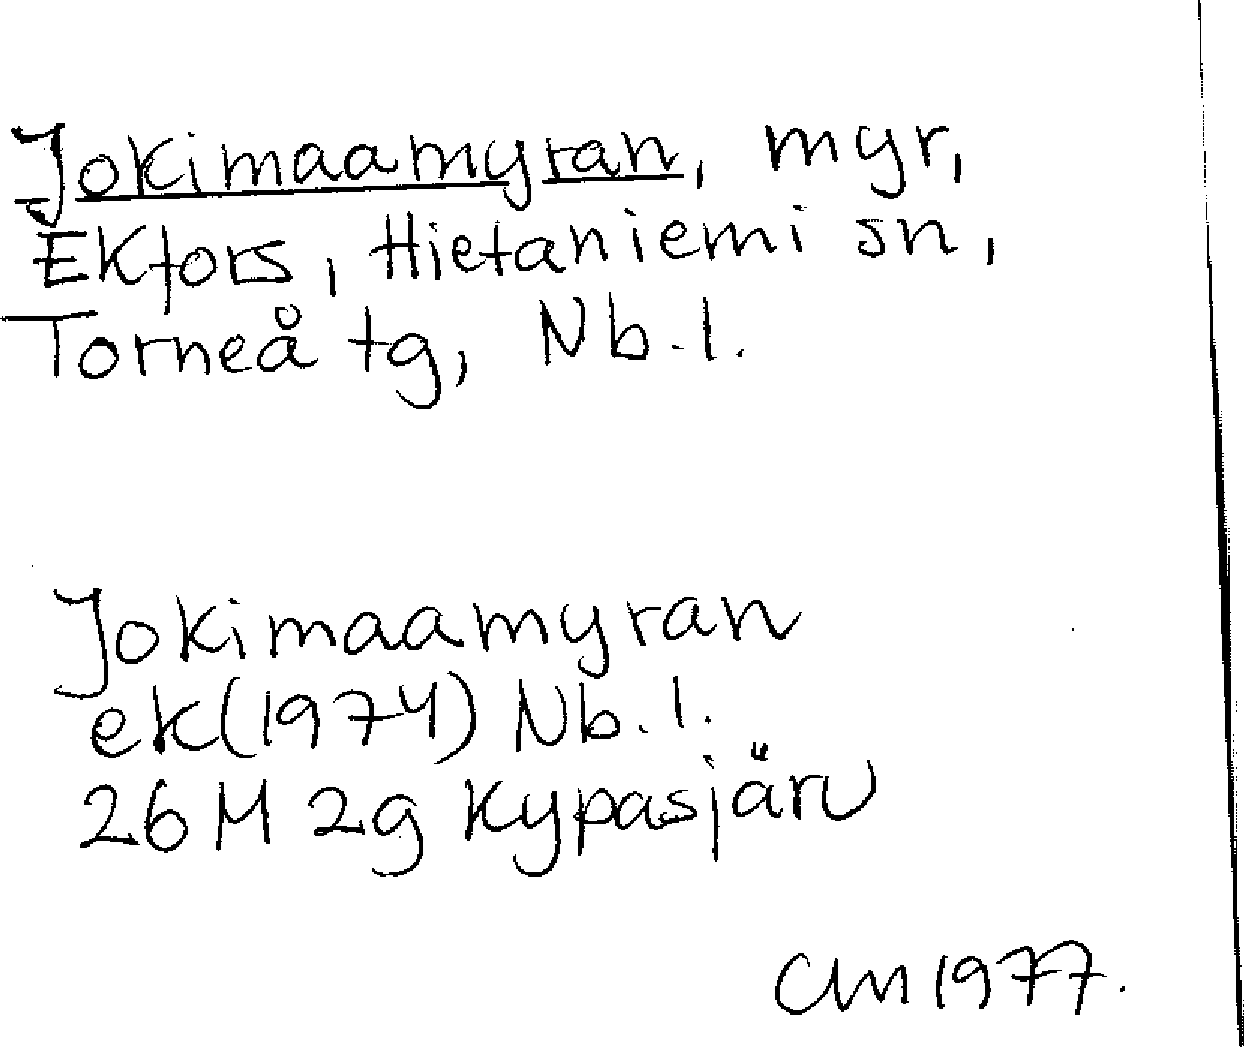 Jokimaamyran, myr,
Ekfors, Hietaniemi sn,
Torneå tg, Nb. l.
Jokimaamyran
ek (1974) Nb. l.
26 M 2g Kypasjärv
1977.